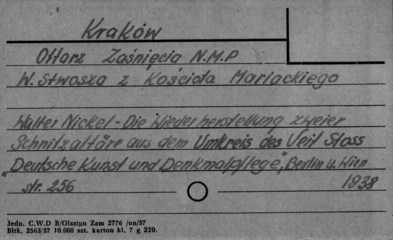 Kraków
Ołtarz Zaśnięcia N.M.P
W. Stwosza z Kościoła Mariackiego
Walter Nickel - Die Wiederherstellung zweier
Schnitzaltäre aus dem Umkreis des Veit Stoss
"Deutsche Kunst und Denkmalpflege", Berlin u. Wien
str. 256 1938
Jedn. C.W.D B/Olsztyn Zam 2776 /on/57
Bltk. 2563/57 10.000 szt. karton kl. 7 g 220.